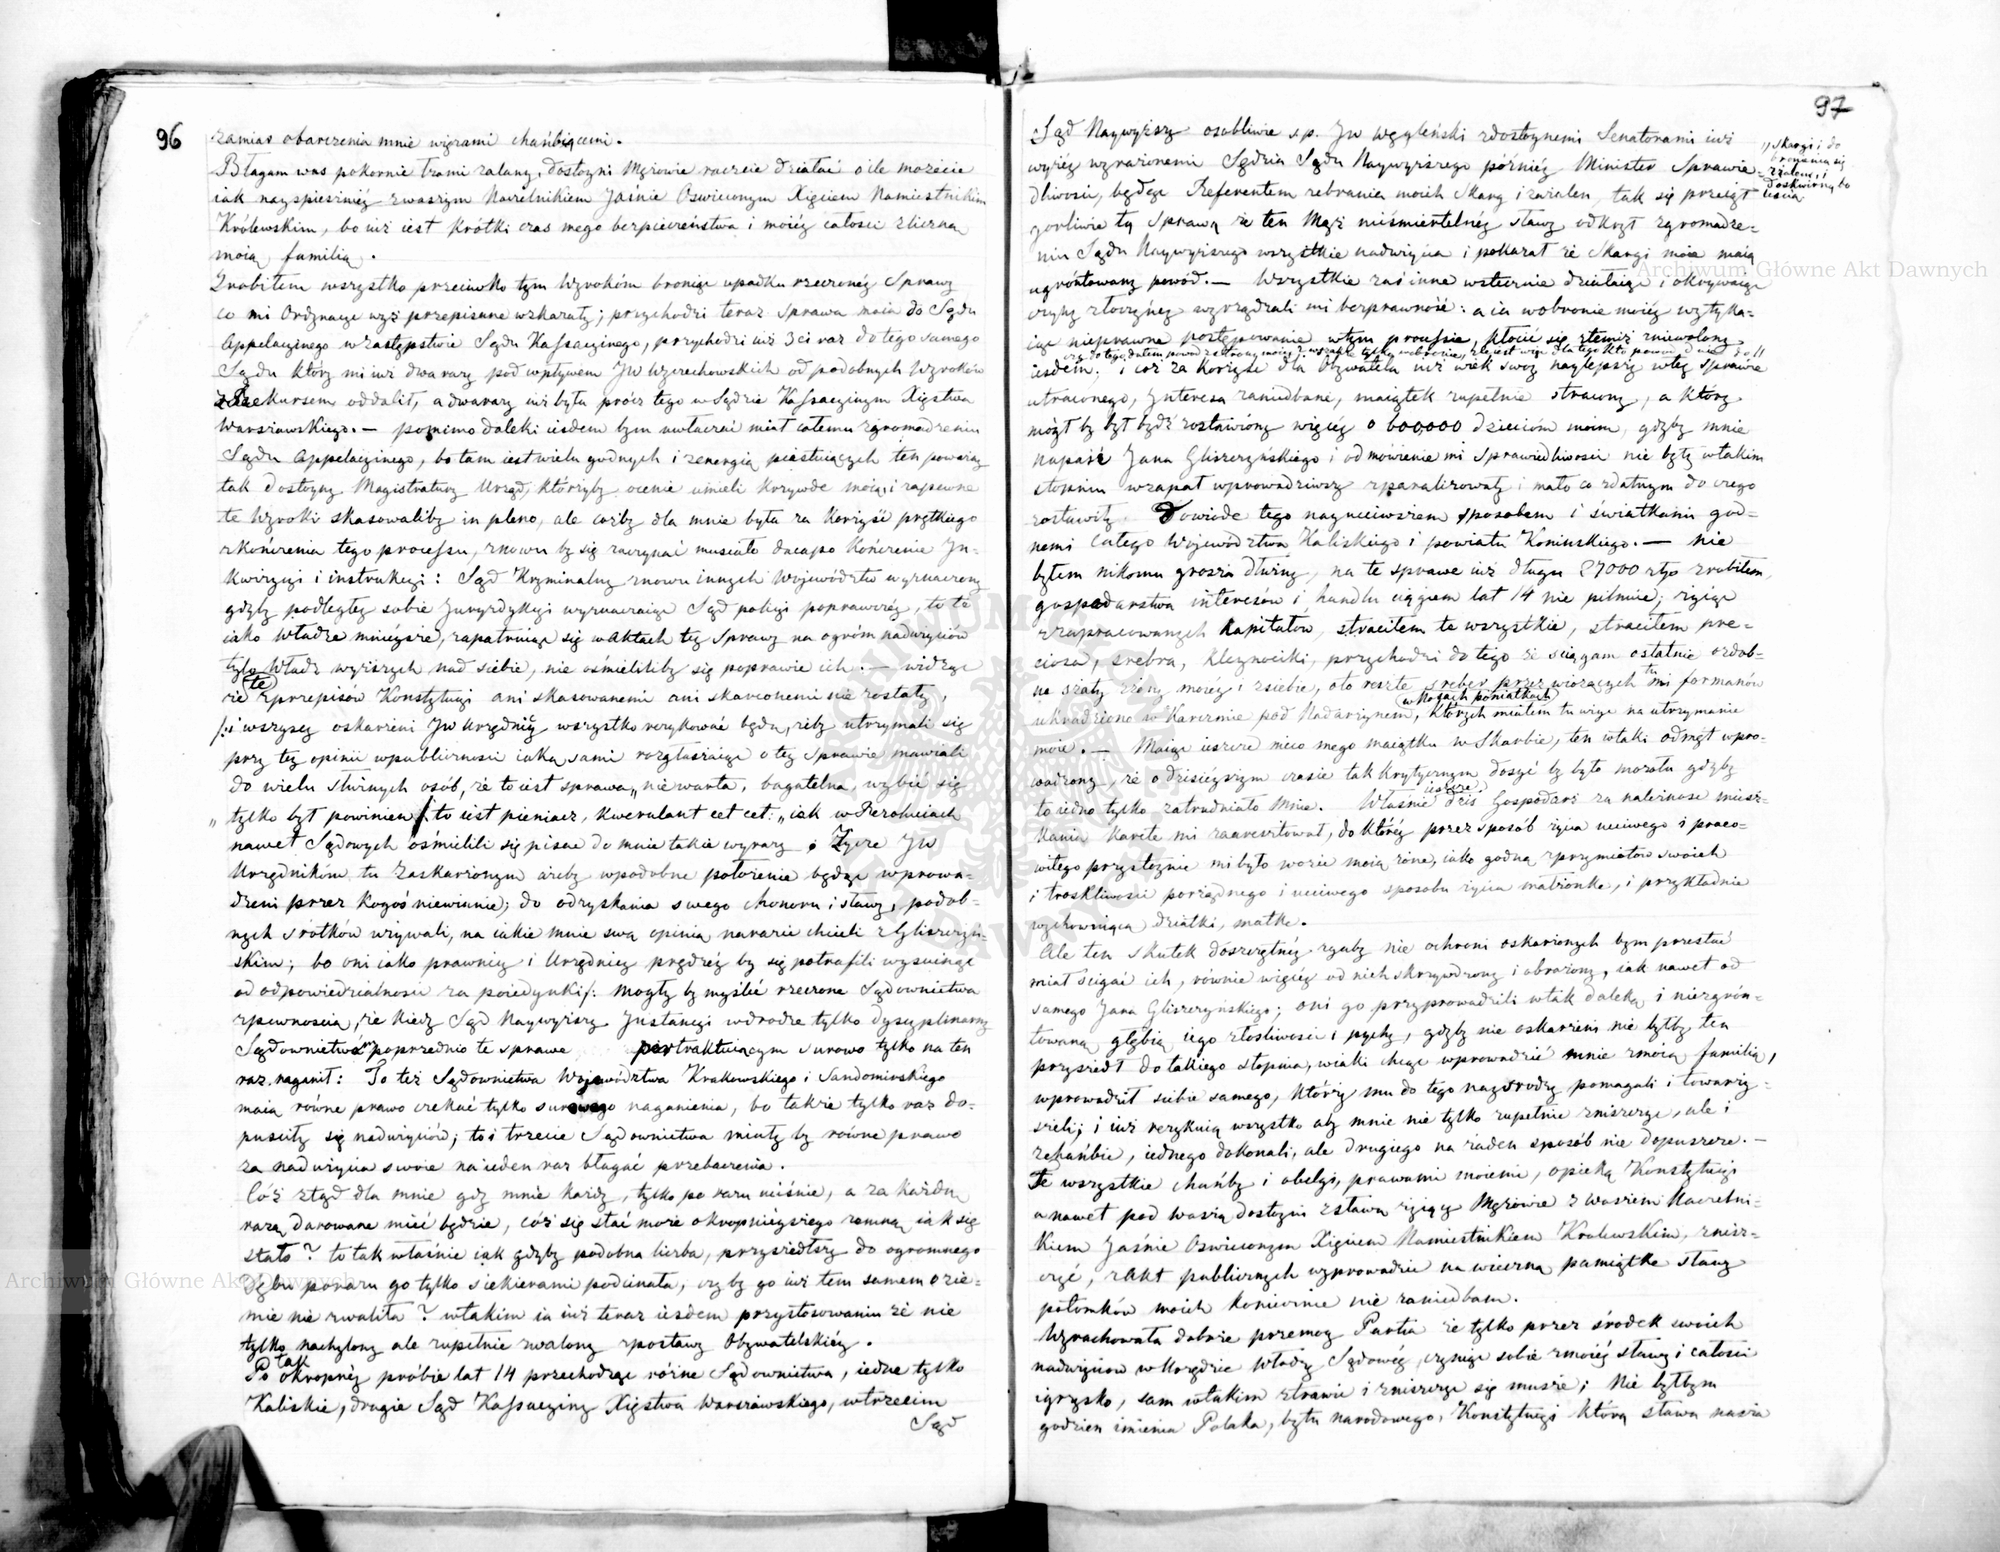 96
zamiar obarczenia mnie więzami chańbiącemi.
Błagam was pokornie łzami zalany, dostoyni Mężowie raczcie działać o ile możecie
iak nayspieszniéy z waszym Naczelnikiem Jaśnie Oswieconym Xięciem Namiestnikiem
Królewskim, bo iuż iest krótki czas mego bezpieczeństwa i moiéy całości z liczną
moią familią.
Zrobiłem wszystko przeciwko tym Wyroków broniąc upadku rzeczonéy Sprawy
co mi Ordynacye wyż przepisane wskazały; przychodzi teraz Sprawa moia do Sądu
Appelacyinego w zastępstwie Sądu Kassacyinego, przychodzi iuż 3ci raz do tego samego
Sądu który mi iuż dwa razy pod wpływem JW Wyczechowskich od podobnych Wyroków
z Rekursem oddalił, a dwa razy iuż była prócz tego w Sądzie Kassacyinym Xięstwa
Warszawskiego. — pomimo daleki iesdem bym uwłaczać miał całemu zgromadzeniu
Sądu Appelacyinego, bo tam iest wielu godnych i z energią piastuiących ten poważny
tak dostoyny Magistratury Urząd, którzyby ocenić umieli krzywdę moią, i zapewne
te Wyroki skasowaliby in pleno, ale cożby dla mnie była za korzyść prętkiego
zkończenia tego processu, znowu by się zaczynać musiało dacapo kończenie In-
kwizycyi i instrukcyi: Sąd Kryminalny znowu innych Województw wyznaczony
gdyby podległey sobie Juryzdykcyi wyznaczaiąc Sąd policyi poprawczéy, to té
iako Władze mnieysze, zapatruiąc się w Aktach téy Sprawy na ogróm nadużyciów
tylo Władz wyższych nad siebie, nie ośmieliliby się poprawić ich. — widząc
że te z przepisów Konstytucyi ani skasowanemi ani skarconemi nie zostały,
/: i wszyscy oskarżeni JW Urzędnicy, wszystko ryzykować będą, żeby utrzymali się
przy téy opinii w publiczności iaką sami rozgłaszaiąc o téy Sprawie mawiali
do wielu służnych osób, że to iest sprawa „nie warta, bagatelna, wybić się
„ tylko był powinien /: to iest pieniacz, kwerulant cet cet: „iak w Rezolucyach
nawet Sądowych ośmielili się pisać do mnie takie wyrazy. Życzę JW
Urzędników tu zaskarżonym ażeby w podobne położenie będąc wprowa-
dzeni przez kogoś niewinnie; do odzyskania swego chonoru i sławy, podob-
nych śrótków używali, na iakie mnie swą opinią narazić chcieli z Gliszczyń-
skim; bo oni iako prawnicy i Urzędnicy prędzéy by się potrafili wysuinąć
od odpowiedzialności za poiedynki/: mogły by myślić rzeczone Sądownictwa
z pewnością, że kiedy Sąd Naywyższy Instancyi w drodze tylko dyscyplinarnéy
Sądownictwa poprzednio te sprawe pertraktuiącym surowo tylko na ten
raz naganił: To też Sądownictwa Województwa Krakowskiego i Sandomirskiego
maią równe prawo czekać tylko surowego naganienia, bo także tylko raz do-
puściły się nadużyciów; to i trzecie Sądownictwa miały by równe prawo
za nadużycia swoie na ieden raz błagać przebaczenia.
Cóż ztąd dla mnie gdy mnie każdy, tylko po razu uciśnie, a za każdą
razą darowane mieć będzie, cóż się stać może okropnieyszego zemną iak się
stało? to tak właśnie iak gdyby podobna liczba, przyszedłszy do ogromnego
Dębu po razu go tylko siekierami podcinała, czyby go iuż tem samem o zie-
mie nie zwaliła? w takim ia iuż teraz iesdem przystosowaniu że nie
tylko nachylony ale zupełnie zwalony z postawy Obywatelskiéy.
Po tak okropnéy próbie lat 14 przechodząc różne Sądownictwa, iedne tylko
Kaliskie, drugie Sąd Kassacyiny Xięstwa Warszawskiego, w trzecim
Sąd
97
Sąd Naywyższy osobliwie s.p. JW Węgleński z dostoynemi Senatorami iuż
wyżéy wyrażonemi Sędzia Sądu Naywyższego późniéy Minister Sprawie-
dliwości, będąc Referentem zebrania moich Skarg i zażaleń, tak się przeiął
gorliwie tą Sprawą że ten Mąż nieśmiertelnéy sławy odkrył zgromadze-
niu Sądu Naywyższego wszystkie nadużycia i pokazał że Skargi moie maią
ugróntowany powód. — Wszystkie zaś inne wstecznie działaiąc i okrywaiąc
czyny złoczynéy wyrządzali mi bezprawność: a ia w obronie moiéy wytyka-
iąc nieprawne postępowanie w tym processie, kłócić się ztemiż zniewolony
iesdem; i coż za korzyść dla Obywatela iuż wiek swoy naylepszy w téy sprawie
utraconego, Interesa zaniedbane, maiątek zupełnie stracony, a który
mógł by być bydź zostawiony więcéy o 600,000 dzieciom moim, gdyby mnie
napaść Jana Gliszczyńskiego i odmówienie mi sprawiedliwości nie były w takim
stopniu w zapał wprowadziwszy zparalizowały i mało co zdatnym do czego
zostawiły. Dowiode tego nayuczciwszém sposobem i światkami god-
nemi całego Województwa Kaliskiego i powiatu Konińskiego. — nie
byłem nikomu grosza dłużny, na te sprawe iuż długu 27000 złp zrobiłem,
gospodarstwa interesów i handlu ciągiem lat 14 nie pilnuie; żyiąc
z zapracowanych kapitałów, straciłem te wszystkie, straciłem pre-
ciosa, srebra, kleynociki, przychodzi do tego że sciągam ostatnie ozdob-
ne szaty z żony moiéy i z siebie, oto reszte sreber przez wiozących tu mi formanów
w Nocach poniatkoch
ukradziono w Karczmie pod Nadarzynem, których miałem tu użyć na utrzymanie
moie. — Maiąc ieszcze nieco mego maiątku w Skarbie, ten w taki odmęt wpro-
wadzony, że o dzisieyszym czasie tak krytycznym dosyć by było moralu gdyby
to iedno tylko zatrudniało mnie. Właśnie ieszcze dziś Gospodarz za należnosć miesz-
kania karete mi zaaresztował, do któréy przez sposób życia uczciwego i praco-
witego przystoynie mi było wozić moią żone, iako godną z przymiotów swoich
i troskliwości porządnego i uczciwego sposobu życia małżonke, i przykładnie
wychowuiącą dziatki, matke.
Ale ten skutek doszczętnéy zguby nie ochroni oskarżonych bym przestać
miał ścigać ich, równie więcéy od nich skrzywdzony i obrażony, iak nawet od
samego Jana Gliszczyńskiego; oni go przyprowadzili w tak daleką i niezgrón-
towaną głębią iego złośliwości i pychy, gdyby nie oskarżeni nie byłby ten
przyszedł do takiego stopnia, w iaki chcąc wprowadzić mnie z moią familią,
wprowadził siebie samego, którzy mu do tego nayszrodzy pomagali i towarzy-
szeli; i iuż ryzykuią wszystko aby mnie nie tylko zupełnie zniszczyć, ale i
zchańbić, iednego dokonali, ale drugiego na żaden sposób nie dopuszcze. —
Te wszystkie chańby i obelgi, prawami moiemi, opieką Konstytucyi
a nawet pod waszą dostoyni z sławą żyiący Mężowie z waszem Naczelni-
kiem Jaśnie Oswieconym Xięciem Namiestnikiem Królewskim, znisz-
czyć, z Akt publicznych wyprowadzić na wieczną pamiątke sławy
potomków moich koniecznie nie zaniedbam.
Wyrachowała dobrze przemoc Partia że tylko przez środek swoich
nadużyciów w Urzędzie Władzy Sądowéy, czyniąc sobie z moiéy sławy i całości
igrzysko, sam w takim ztrawie i zniszczę się muszę; Nie byłbym
godzien imienia Polaka, bytu narodowego, Konstytucyi którą sława nasza